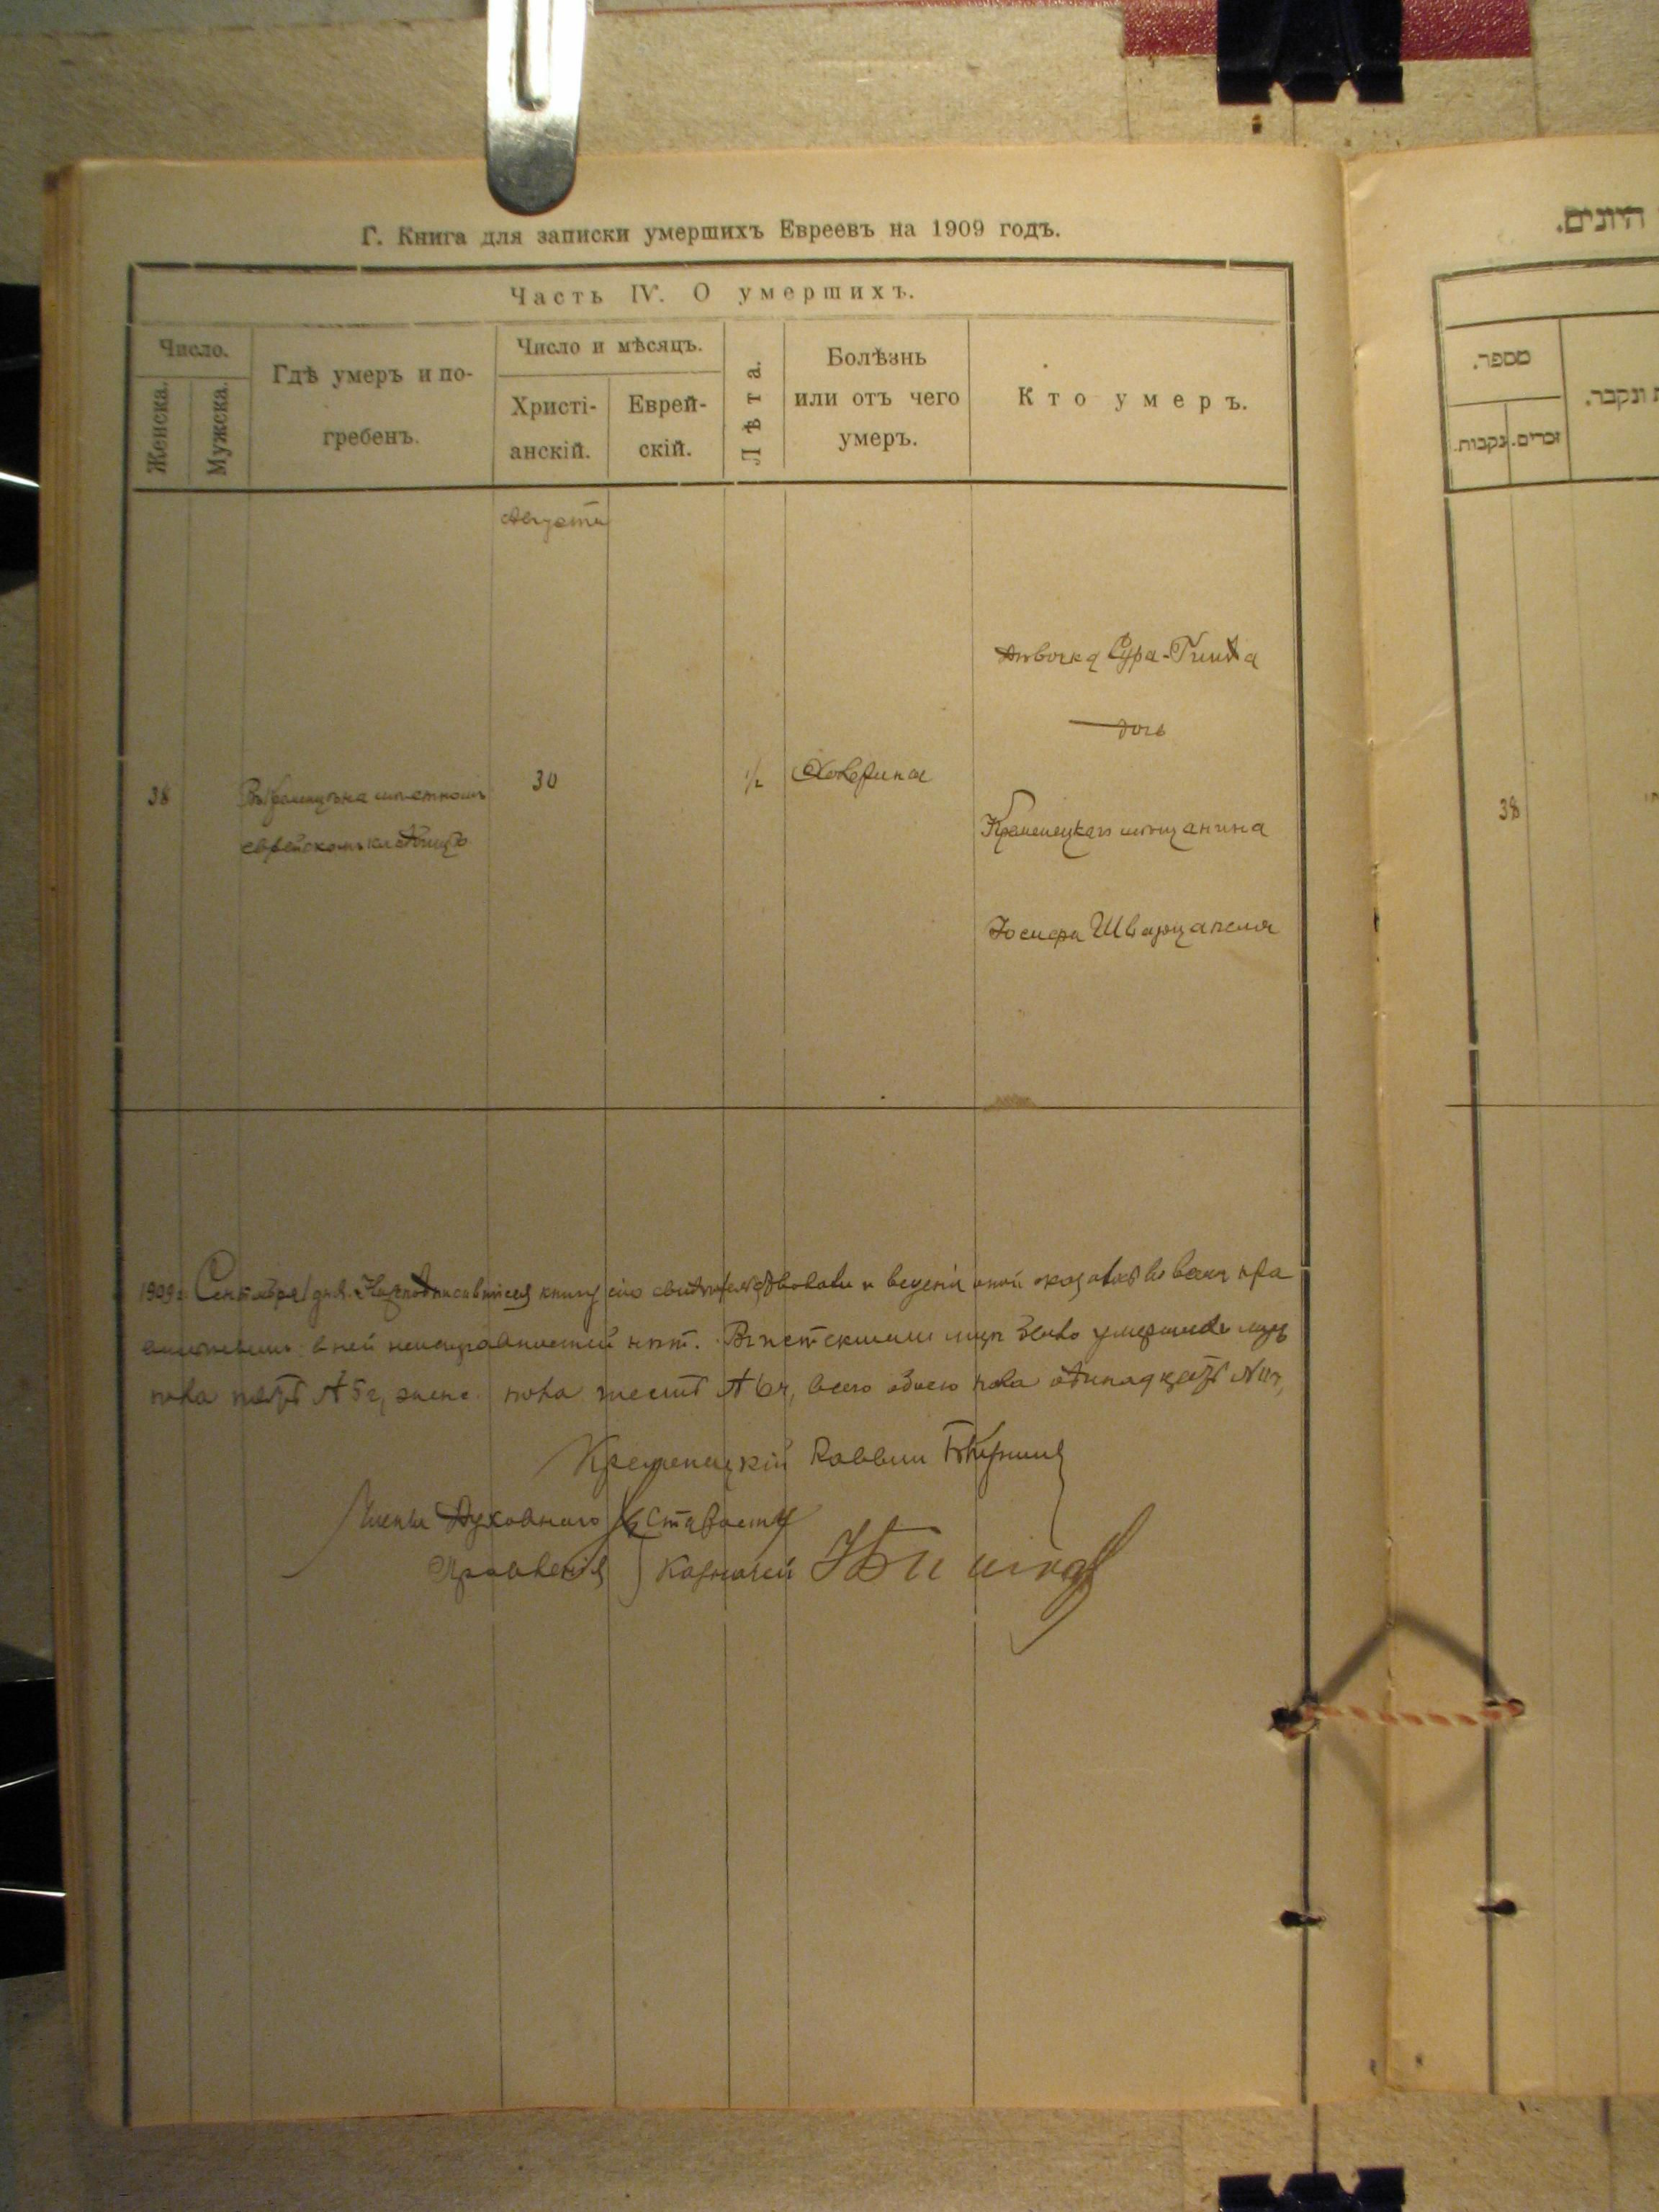 Г. Книга для записки умершихъ Евреевъ на 1909 годъ.
Часть IV. О умершихъ.
Число.
Женска.
Мужска.
Гдѣ умеръ и по-
гребенъ.
Число и мѣсяцъ.
Христі-
анскій.
Еврей-
скій.
Лѣта.
Болѣзнь
или отъ чего
умеръ.
Кто умеръ.
Августа
38
Въ Кременцѣ на мѣстномъ
еврейскомъ кладбищѣ
30
1/2
Холерина
Дѣвочка Сура-Гинда
дочь
Кременецкаго мѣщанина
Іосифа Шварцапеля
1909 г. Сентября 1 дня. книгу сію свидѣтельствовали и веденіи оной оказалось во всемъ пра
в ней неисправностей нѣтъ. Въ истекшемъ мцѣ было умершихъ муж
пола пять №5ч, женс. пола шесть №6ч, всего обоего пола одинадцать №11ч,
Кременецкій Раввин
Члены Духовнаго Староста
Правленія Казначей
היונים.
מספר.
זכרים.
נקבות.
ונקבר.
38